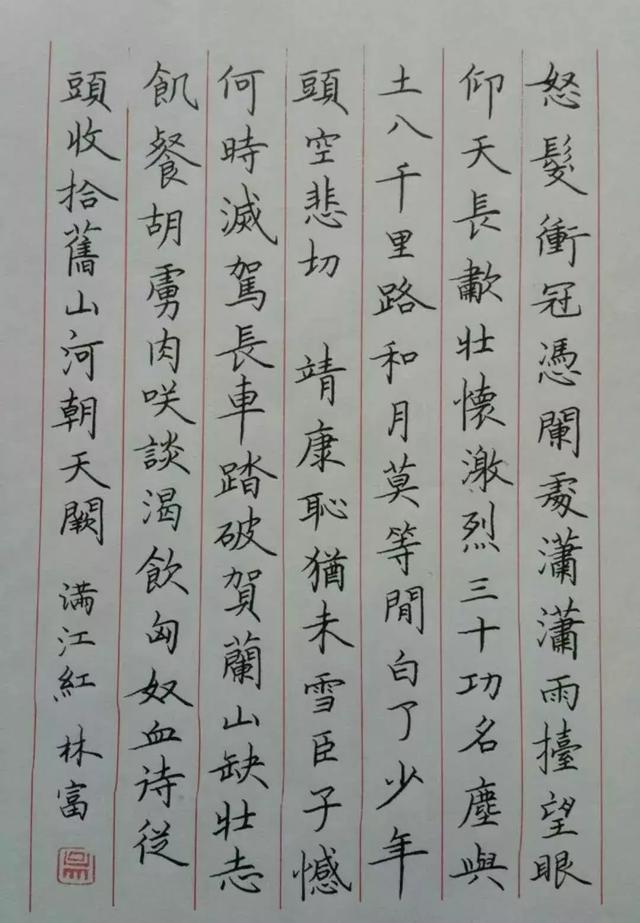 怒髮衝冠憑闌處瀟瀟雨擡望眼
仰天長歗壯懷激烈三十功名塵與
土八千里路和月莫等閒白了少年
頭空悲切 靖康恥猶未雪臣子憾
何時滅駕長車踏破賀蘭山缺壯志
飢餐胡虜肉咲談渴飲匈奴血诗從
頭收拾舊山河朝天闕 满江紅 林富